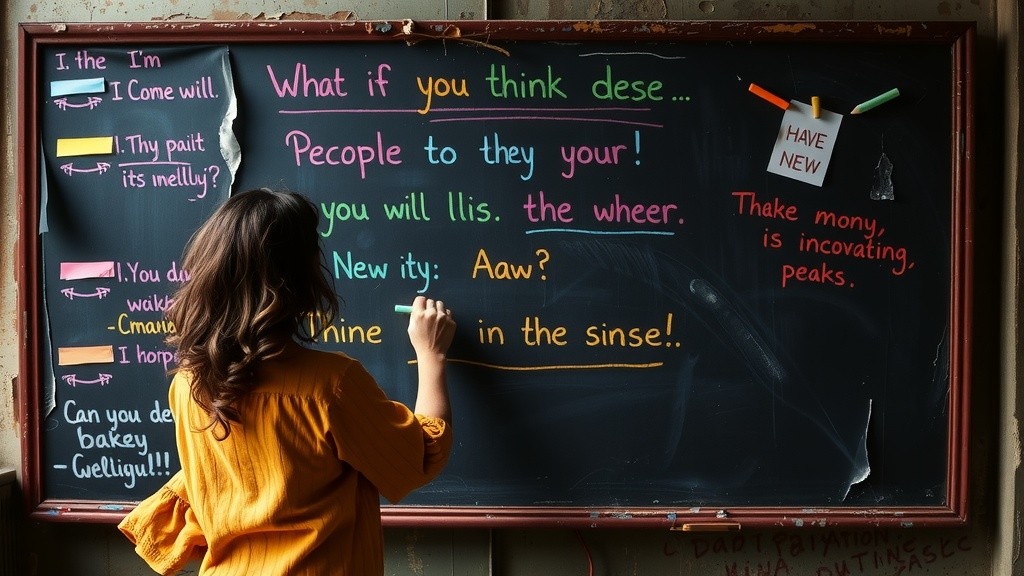 I. the I'm
I Come will.
I. Thy paiit
its inellly?
I. You du
wakh
- Cmanie
I horp
Can you de
bakey
- Cwelligu!!!
What if you think dese...
Pecople to they your!
you will llis. the wheer.
New ity: Aaw?
Thine in the sinse!.
HAVE
NEW
Thake mony,
is incovating,
peaks.